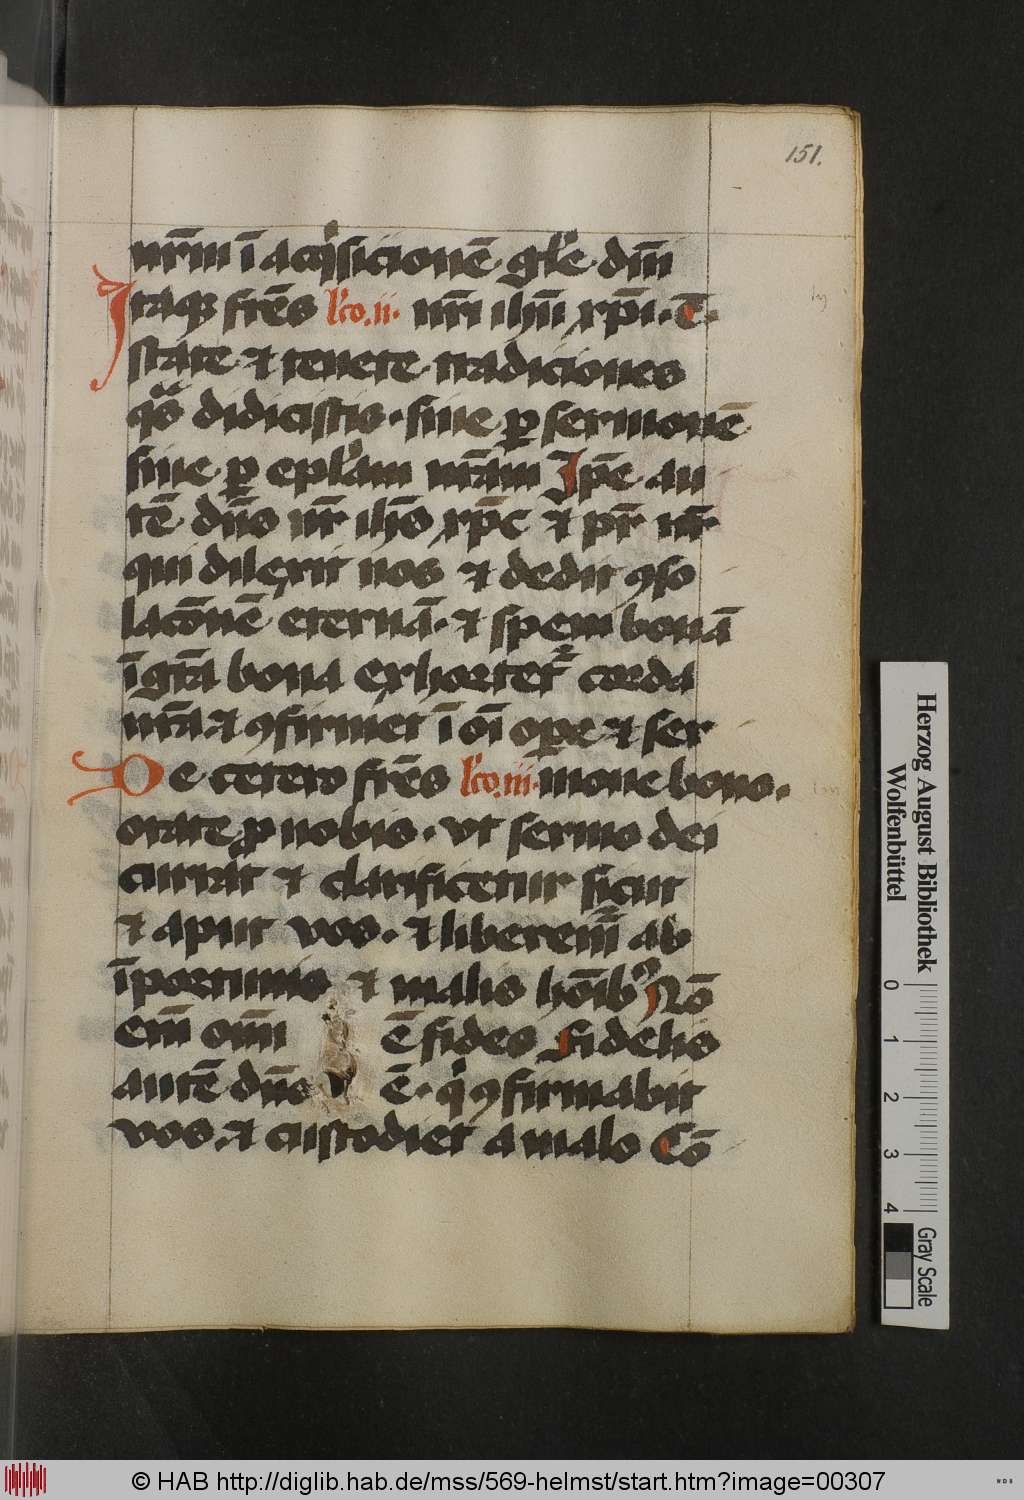 151.
nr̄m ī acq̇sicionē gl'e dn̄i
Itaq; fr̄es lc̄o.ii. nr̄i ih̄u xp̄i. Ē.
state et tenete tradiciones
qͣs didicistis. siue ꝑ sermonē
siue ꝑ epl'am nr̄am Ip̄e au
tē dn̄s nr̄ ih̄s xp̄c et pr̄ nr̄
qui dilexit nos et dedit ꝯso
lacōnē eternā. et spem bonā
ī gr̄a bona exhortet᷑ corda
nr̄a et ꝯfirmet ī oī oꝑe et ser
De cetero fr̄es lc̄o.iii. mone bono.
orate ꝓ nobis. vt sermo dei
currat et clarificetur sicut
et aput vos. et liberem᷑ ab
īportunis et malis hoīb9 Nō
em̄ om̄i ē fides Fidelis
autē dn̄s ē. q̇ ꝯfirmabit
vos. et custodiet a malo Cō
Herzog August Bibliothek
Wolfenbüttel
0 1 2 3 4
Gray Scale
© HAB http://diglib.hab.de/mss/569-helmst/start.htm?image=00307